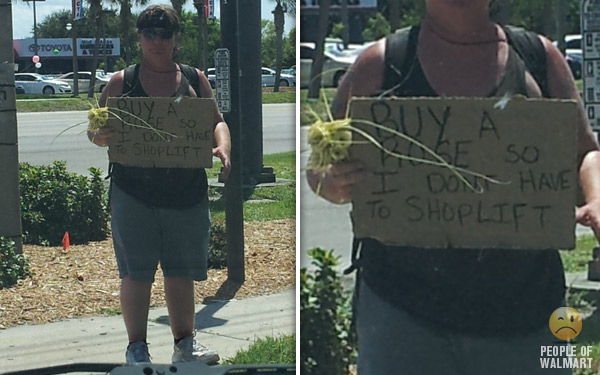 TOYOTA
BUY A
ROSE SO
I DONT HAVE
TO SHOPLIFT
BUY A
ROSE SO
I DONT HAVE
TO SHOPLIFT
PEOPLE OF
WALMART